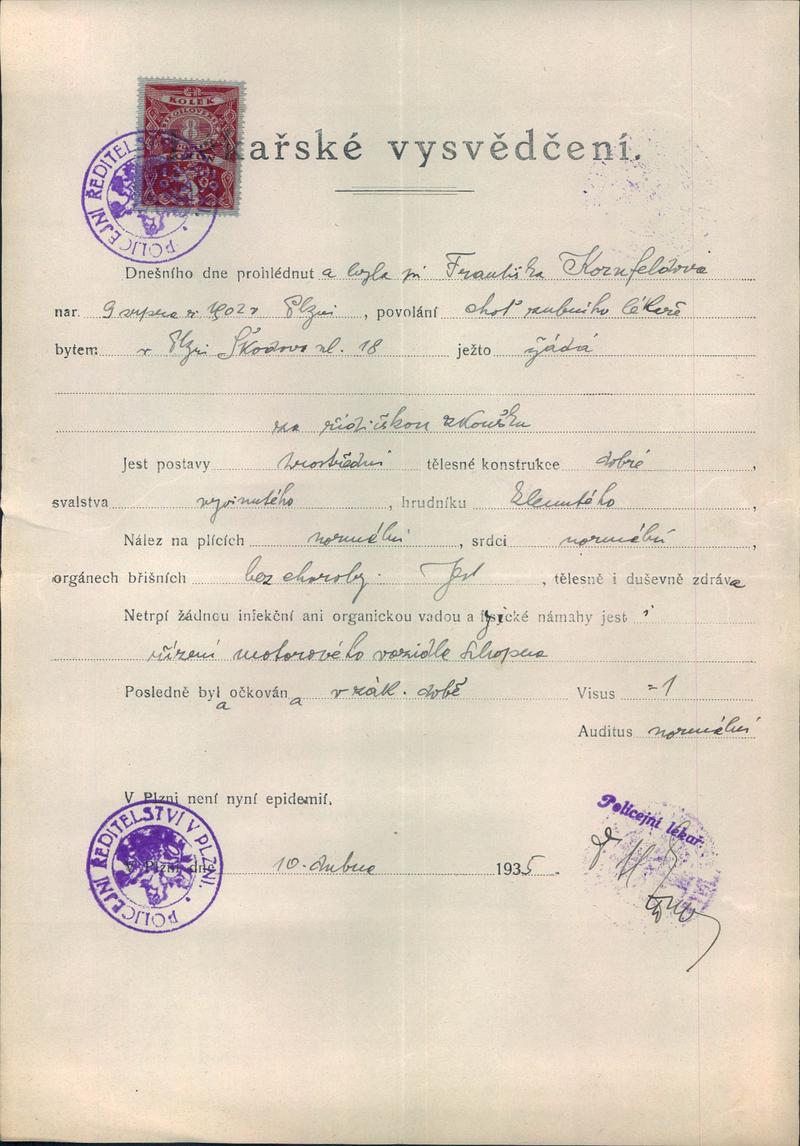 KOLEK
8
kařské vysvědčení.
POLICEJNÍ ŘEDITELS
Dnešního dne prohlédnut a byla pí Františka Kornfeldová
nar. 9 srpna r. 1902 v Plzni, povolání choť zubního lékaře
bytem v Plzni Škodova ul. 18 ježto žádá
za řidičskou zkoušku
Jest postavy prostřední tělesné konstrukce dobré,
svalstva vyvinutého, hrudníku klenutého,
Nález na plících normální, srdci normální,
orgánech břišních bez choroby. Jest, tělesně i duševně zdráva
Netrpí žádnou infekční ani organickou vadou a fysické námahy jest i
řízení motorového vozidla schopna
Posledně byla očkována v zák. době Visus =1
Auditus normální
V Plzni není nyní epidemií.
POLICEJNÍ ŘEDITELSTVÍ V PLZNI.
V Plzni dne 10. dubna 1935.
Policejní lékař: